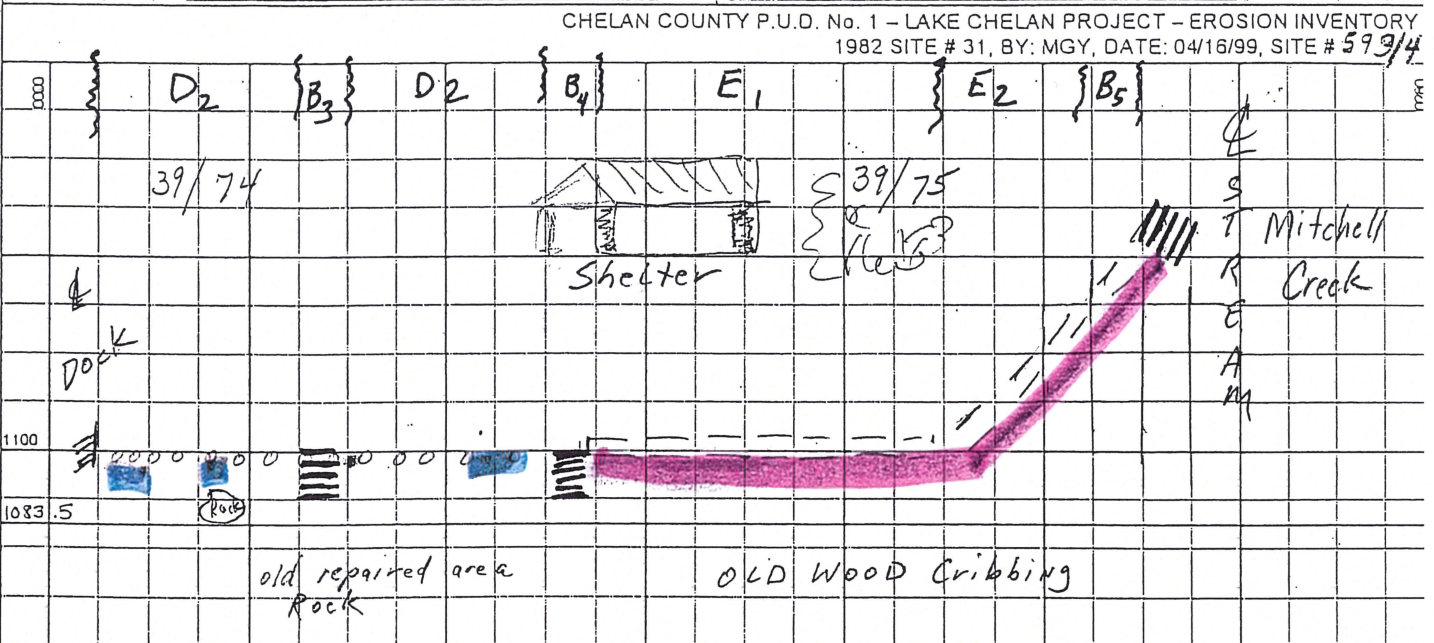 CHELAN COUNTY P.U.D. No. 1 – LAKE CHELAN PROJECT – EROSION INVENTORY
1982 SITE # 31, BY: MGY, DATE: 04/16/99, SITE # 593/4
0000
D2 B3 D2 B4 E1 E2 B5
39/74
39/75
&
Shelter
℄ STREAM
Mitchell
Creek
℄
Dock
1100
1083.5
Rock
old repaired area
Rock
OLD WOOD Cribbing